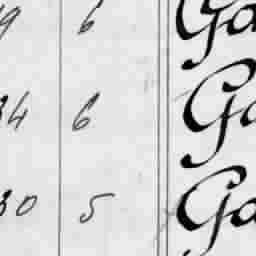 9 6 Ga
34 6 Ga
30 5 Ga